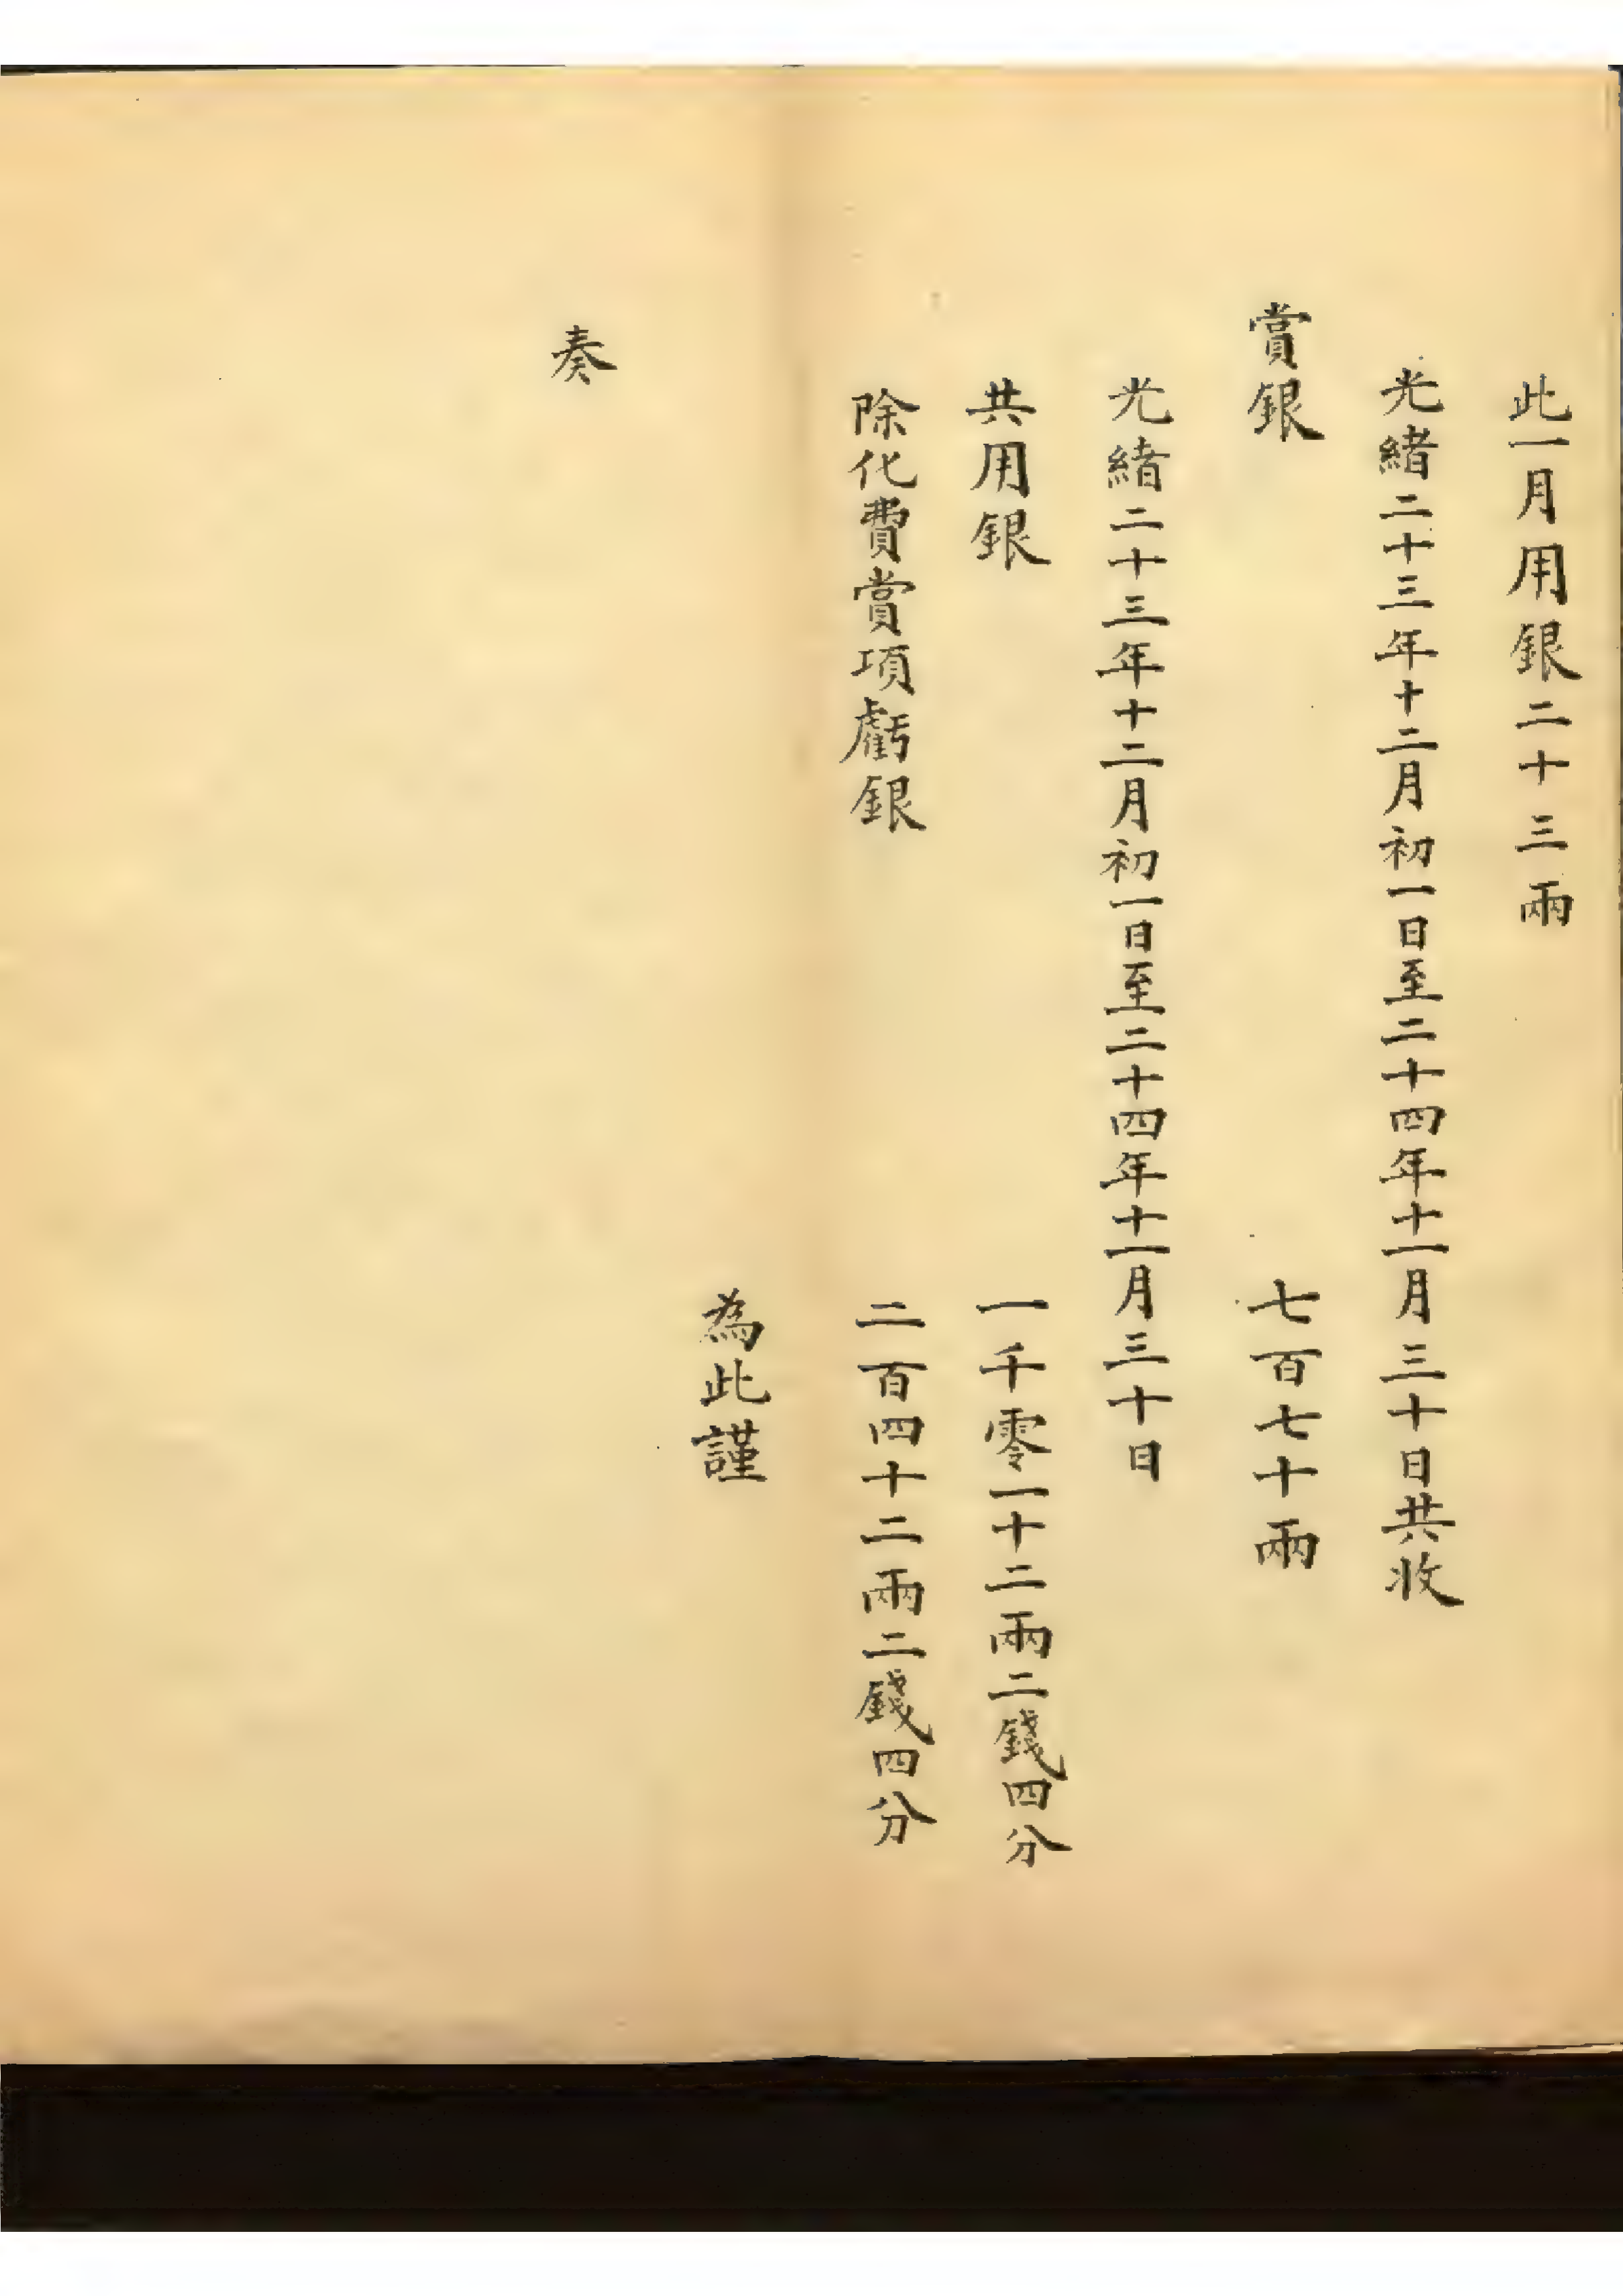 此一月用銀二十三兩
光緒二十三年十二月初一日至二十四年十一月三十日共收
賞銀 七百七十兩
光緒二十三年十二月初一日至二十四年十一月三十日
共用銀 一千零一十二兩二錢四分
除化費賞項虧銀 二百四十二兩二錢四分
為此謹
奏